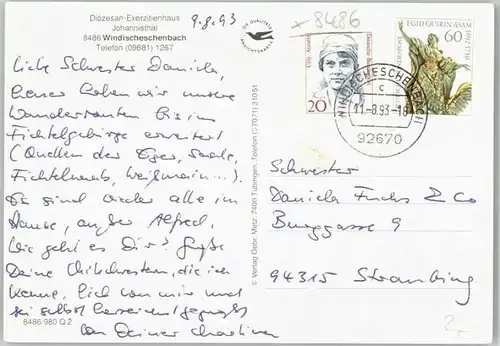 Diözesan-Exerzitienhaus
Johannisthal
8486 Windischeschenbach
Telefon (09681) 1267
9.8.93
DIE QUALITÄTS
* 8486
Liebe Schwester Daniela,
heuer haben wir unsere
Wanderrouten bis ins
Fichtelgebirge erweitert
(Quellen der Eger, Saale,
Fichtelnaab, Weißmain...).
Es sind wieder alle im
Hause, außer Alfred.
Wie geht es Dir? Grüße
Deine Mitschwestern, die ich
kenne, lieb von mir und
sei selbst herzlichst gegrüßt
von Deiner
8486/980 Q 2
© Verlag Gebr. Metz, 7400 Tübingen, Telefon (07071) 31051
20
Deutsche
EGID QUIRIN ASAM
1692-1750
60
WINDISCHESCHENBACH
c
11.-8.93-18
92670
Schwester
Daniela Fuchs & Co
Burggasse 9
94315 Straubing
2,-